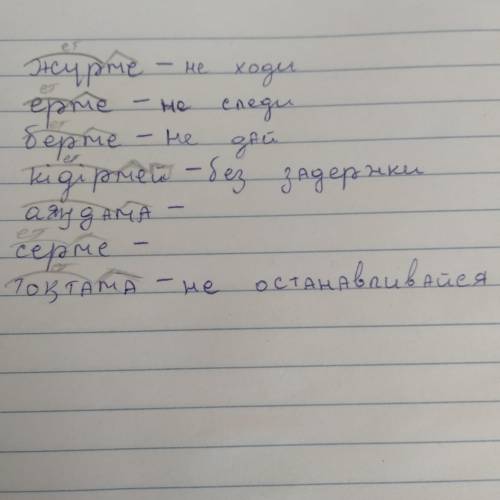 ет
жүрме – не ходи
ет
ерме – не следи
ет
берме – не дай
ет
кідірмей – без задержки
аяудама –
ет
серме –
ет
тоқтама – не останавливайся